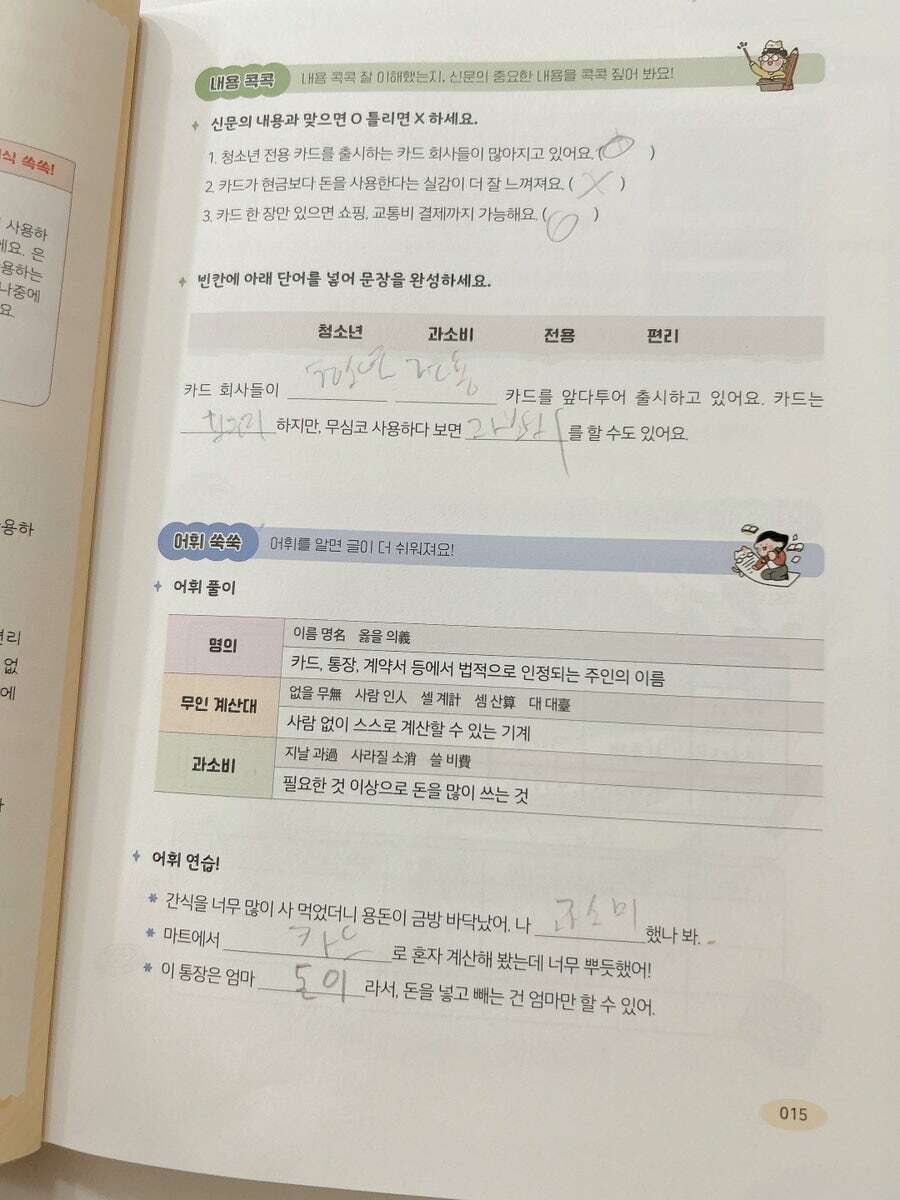 식 쏙쏙!
사용하
에요. 은
용하는
나중에
요.
용하
편리
없
에
내용 콕콕
내용 콕콕 잘 이해했는지, 신문의 중요한 내용을 콕콕 짚어 봐요!
신문의 내용과 맞으면 O 틀리면 X 하세요.
1. 청소년 전용 카드를 출시하는 카드 회사들이 많아지고 있어요. ( O )
2. 카드가 현금보다 돈을 사용한다는 실감이 더 잘 느껴져요. ( X )
3. 카드 한 장만 있으면 쇼핑, 교통비 결제까지 가능해요. ( O )
빈칸에 아래 단어를 넣어 문장을 완성하세요.
청소년 과소비 전용 편리
카드 회사들이 청소년 전용 카드를 앞다투어 출시하고 있어요. 카드는
하지만, 무심코 사용하다 보면 를 할 수도 있어요.
어휘 쑥쑥
어휘를 알면 글이 더 쉬워져요!
어휘 풀이
명의
이름 명名 옳을 의義
카드, 통장, 계약서 등에서 법적으로 인정되는 주인의 이름
무인 계산대
없을 무無 사람 인人 셀 계計 셈 산算 대 대臺
사람 없이 스스로 계산할 수 있는 기계
과소비
지날 과過 사라질 소消 쓸 비費
필요한 것 이상으로 돈을 많이 쓰는 것
어휘 연습!
* 간식을 너무 많이 사 먹었더니 용돈이 금방 바닥났어. 나 했나 봐.
* 마트에서 카드 로 혼자 계산해 봤는데 너무 뿌듯했어!
* 이 통장은 엄마 돈이 라서, 돈을 넣고 빼는 건 엄마만 할 수 있어.
015